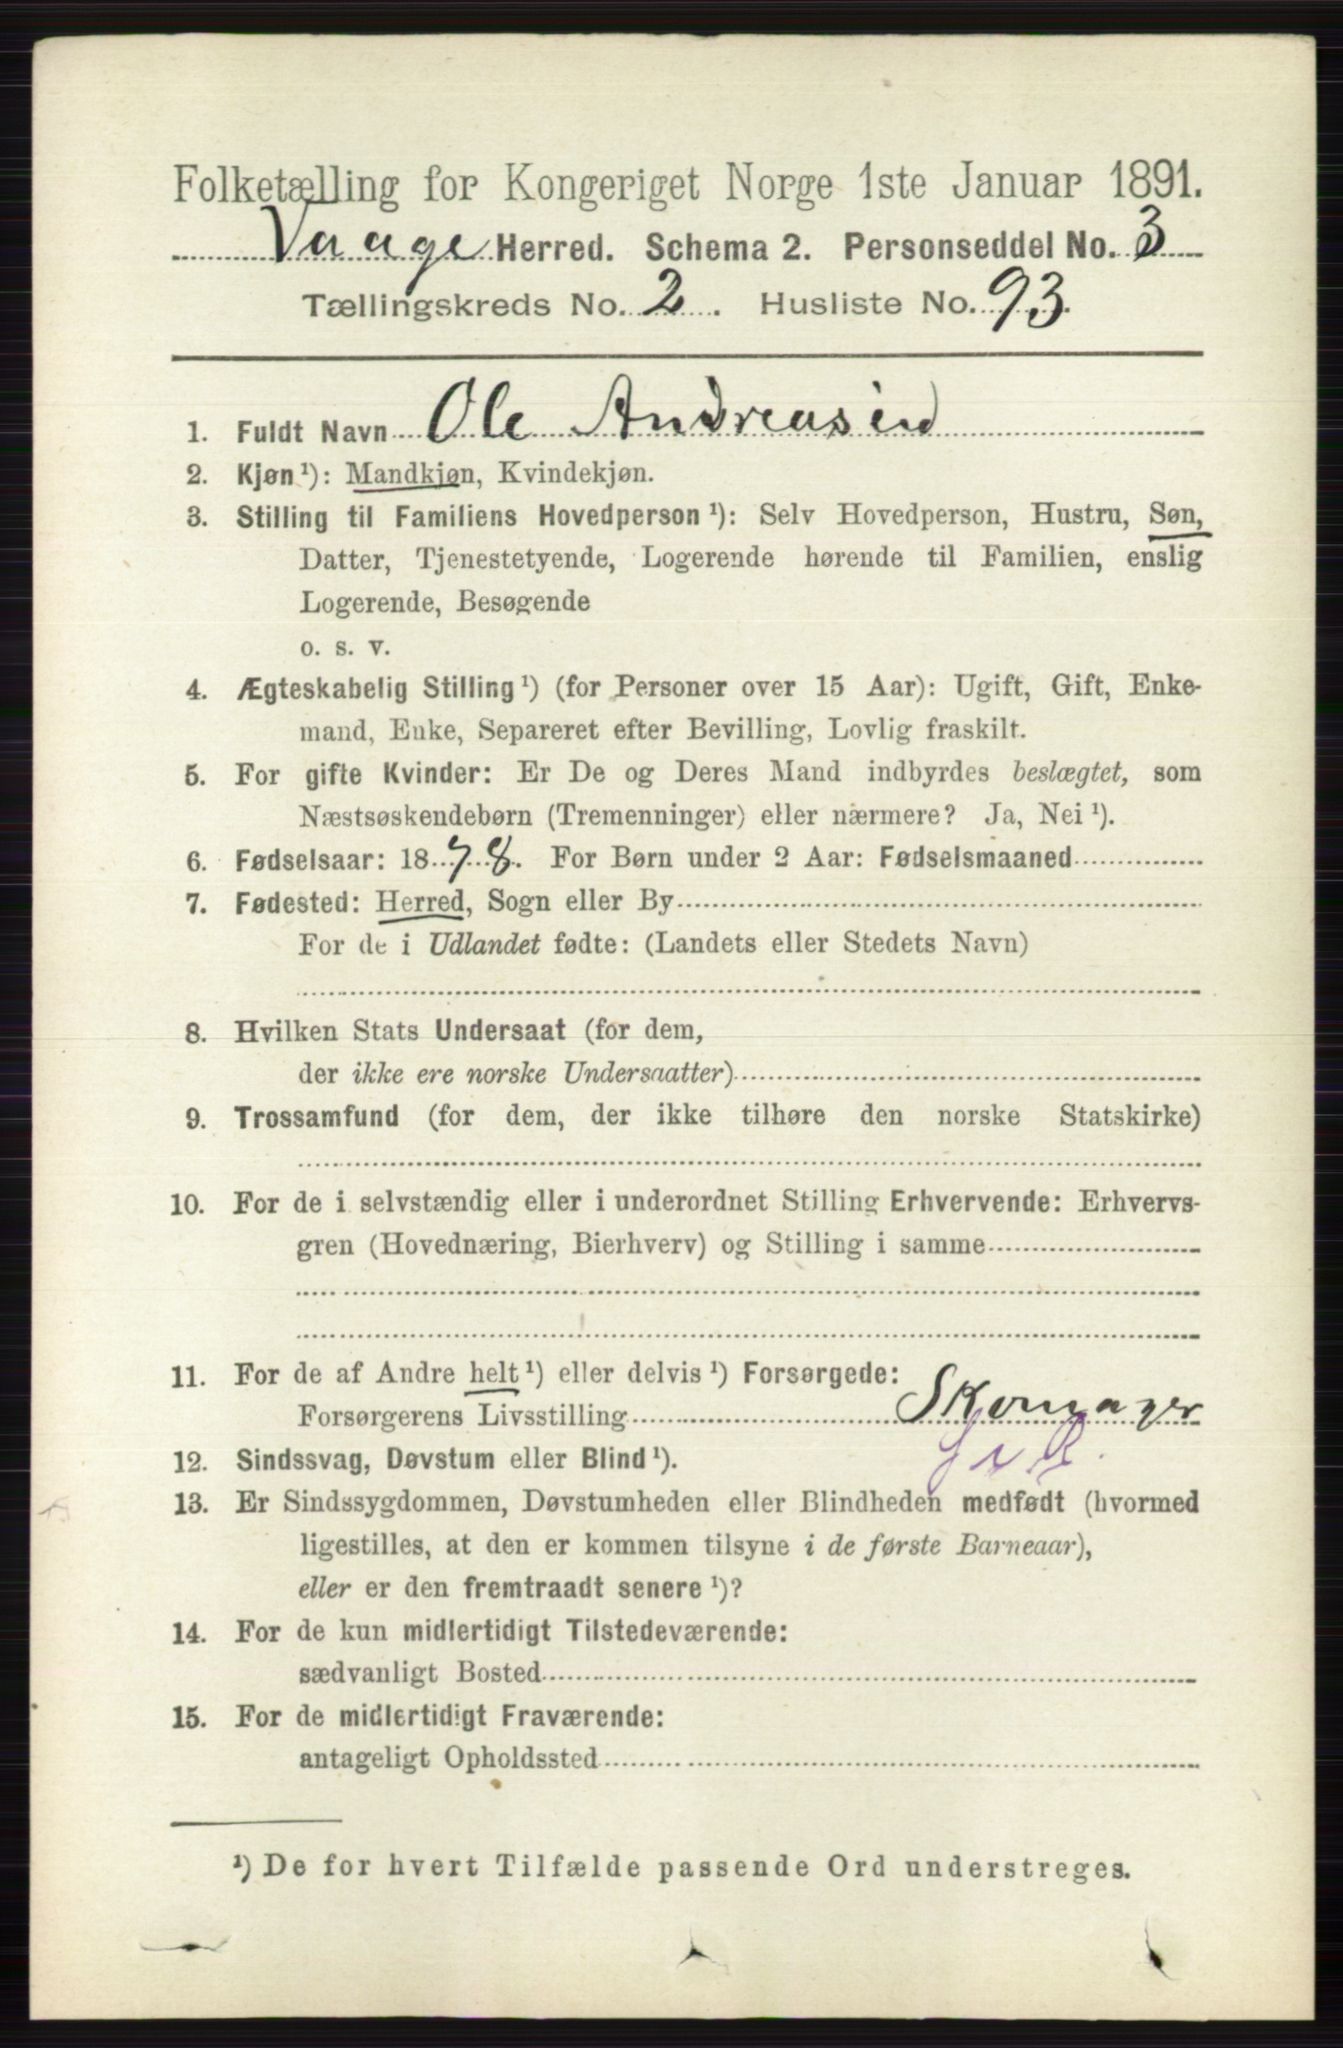 Folketælling for Kongeriget Norge 1ste Januar 1891.
Vaage Herred. Schema 2. Personseddel No. 3
Tællingskreds No. 2. Husliste No. 93.
1. Fuldt Navn Ole Andreasen
2. Kjøn¹): Mandkjøn, Kvindekjøn.
3. Stilling til Familiens Hovedperson¹): Selv Hovedperson, Hustru, Søn,
Datter, Tjenestetyende, Logerende hørende til Familien, enslig
Logerende, Besøgende
o. s. v.
4. Ægteskabelig Stilling¹) (for Personer over 15 Aar): Ugift, Gift, Enke-
mand, Enke, Separeret efter Bevilling, Lovlig fraskilt.
5. For gifte Kvinder: Er De og Deres Mand indbyrdes beslægtet, som
Næstsøskendebørn (Tremenninger) eller nærmere? Ja, Nei¹).
6. Fødselsaar: 1878. For Børn under 2 Aar: Fødselsmaaned
7. Fødested: Herred, Sogn eller By
For de i Udlandet fødte: (Landets eller Stedets Navn)
8. Hvilken Stats Undersaat (for dem,
der ikke ere norske Undersaatter)
9. Trossamfund (for dem, der ikke tilhøre den norske Statskirke)
10. For de i selvstændig eller i underordnet Stilling Erhvervende: Erhvervs-
gren (Hovednæring, Bierhverv) og Stilling i samme
11. For de af Andre helt¹) eller delvis¹) Forsørgede:
Forsørgerens Livsstilling Skomager
12. Sindssvag, Døvstum eller Blind¹).
13. Er Sindssygdommen, Døvstumheden eller Blindheden medfødt (hvormed
ligestilles, at den er kommen tilsyne i de første Barneaar),
eller er den fremtraadt senere¹)?
14. For de kun midlertidigt Tilstedeværende:
sædvanligt Bosted
15. For de midlertidigt Fraværende:
antageligt Opholdssted
¹) De for hvert Tilfælde passende Ord understreges.